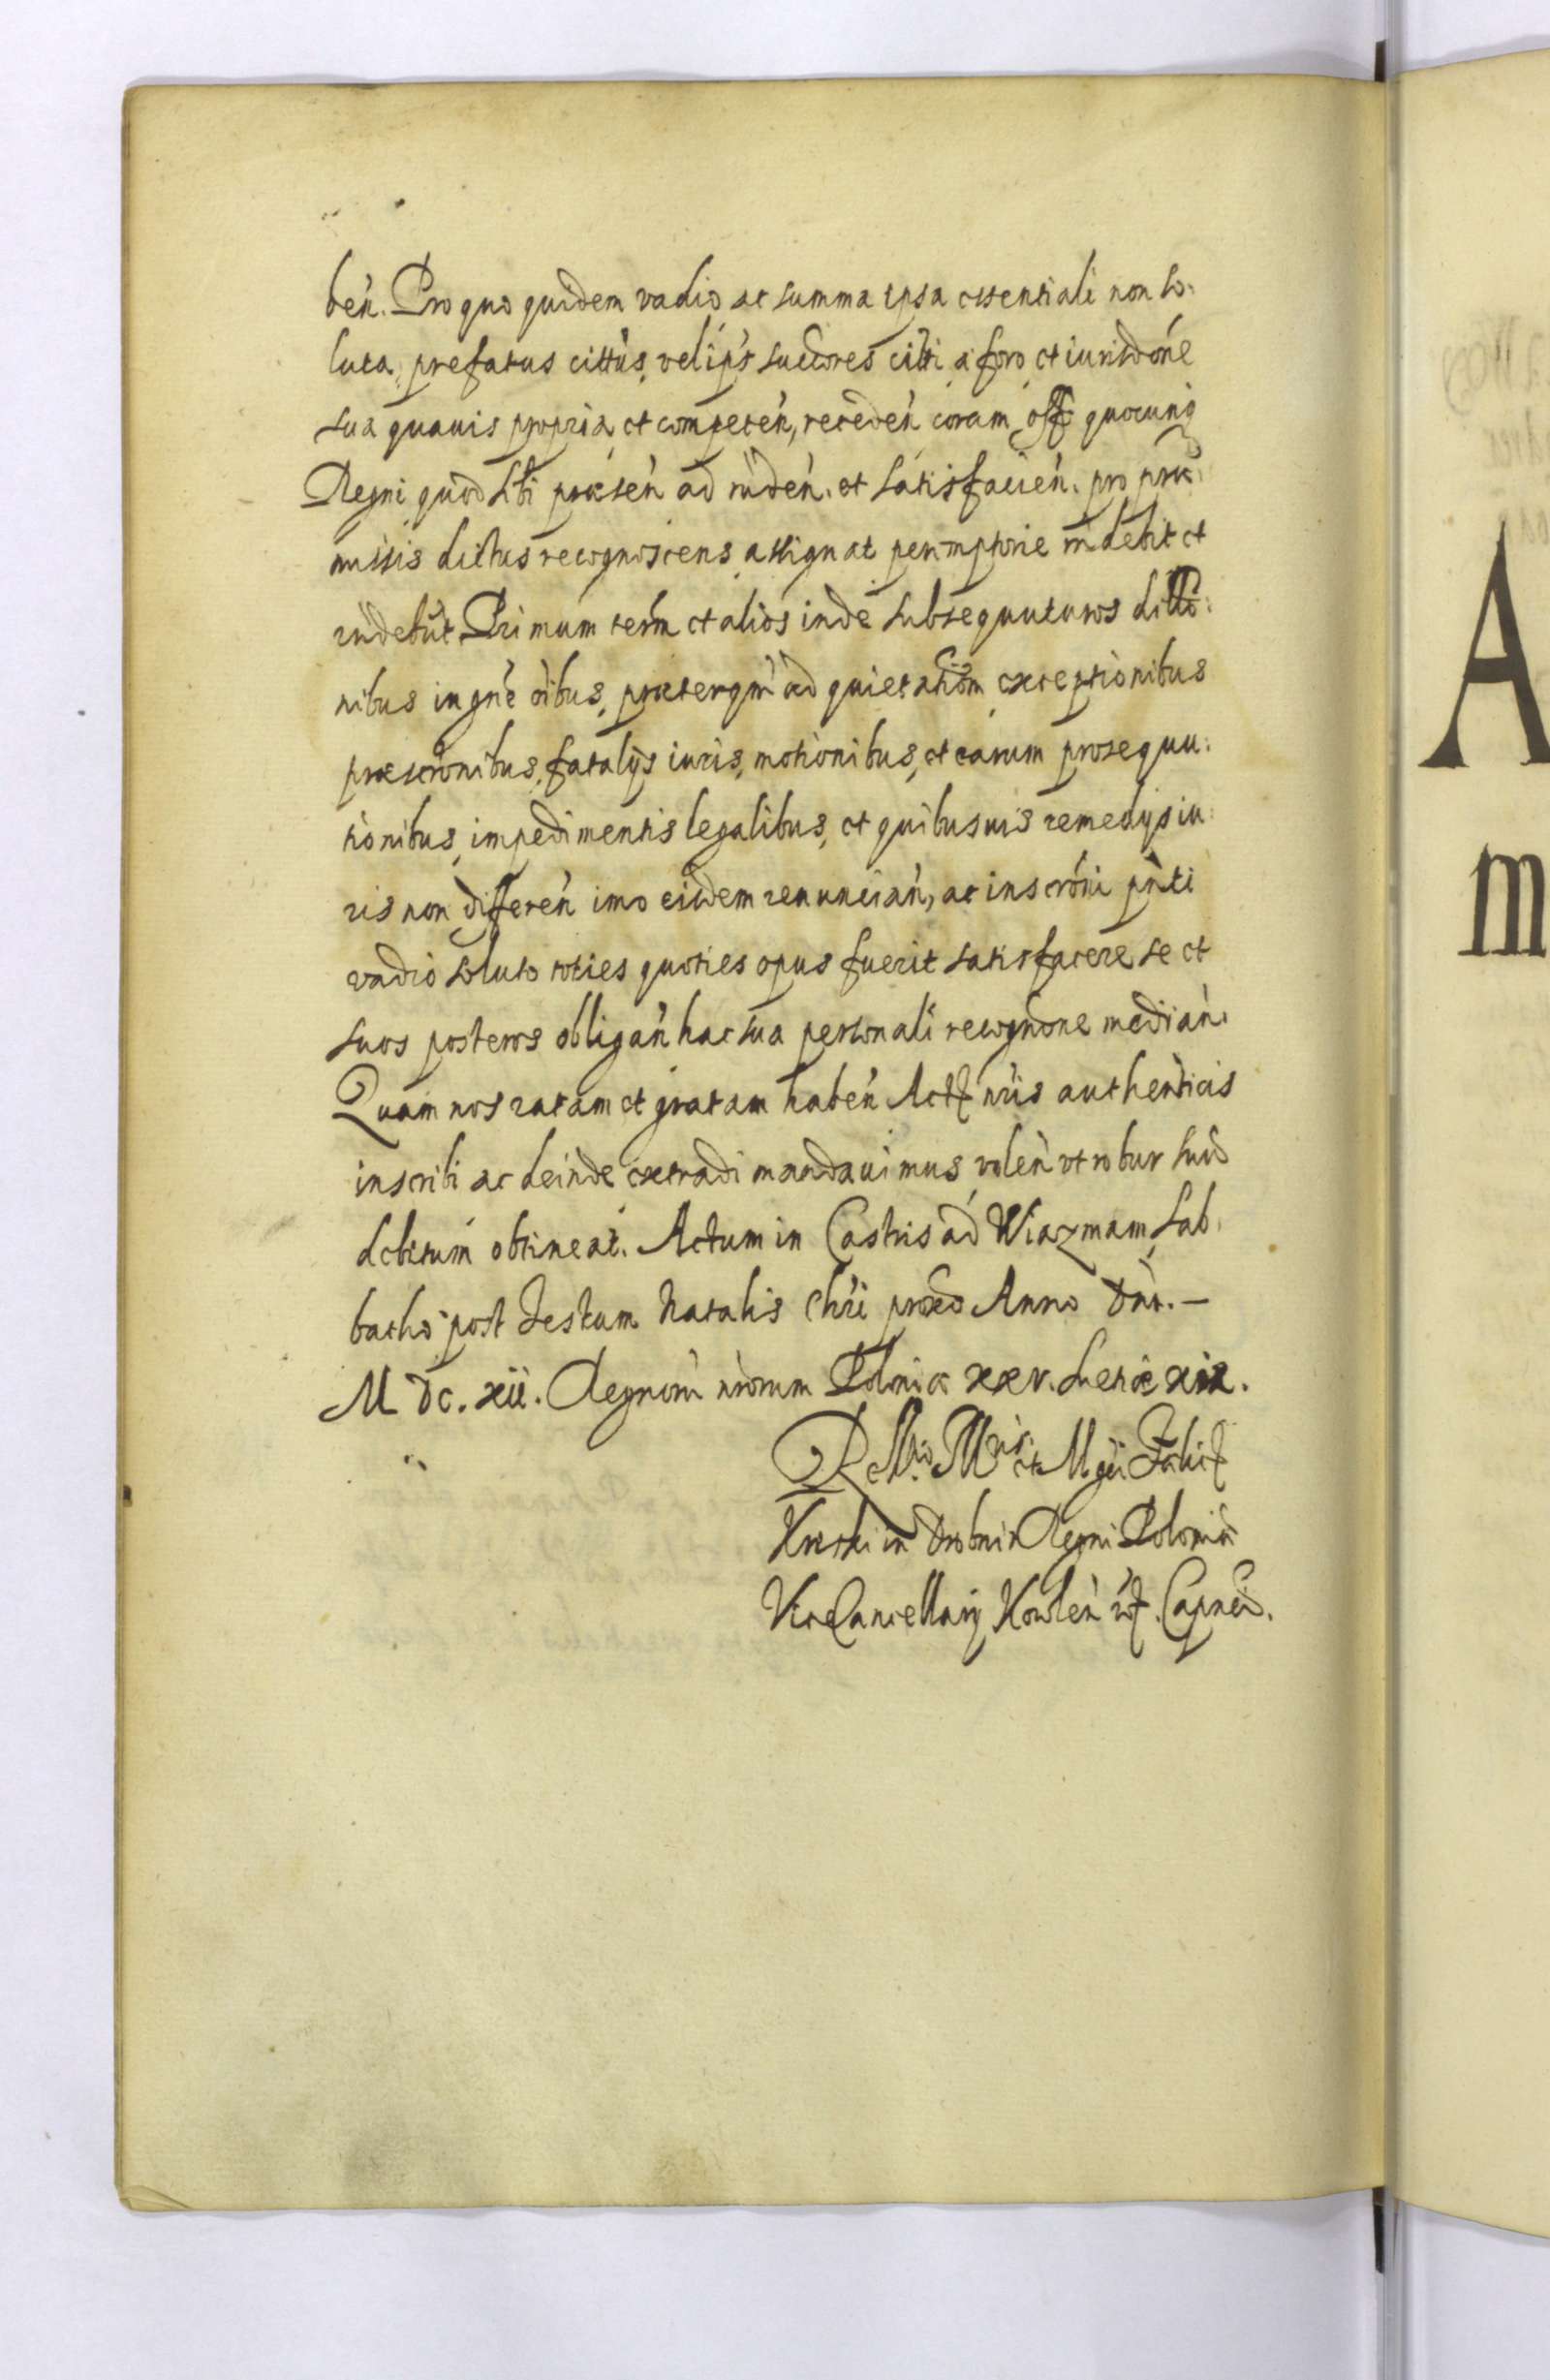 ben. Pro quo quidem vadio ac summa ipsa essentiali non so-
luta, prefatus cittus, vel ips succores citti a foro et iurisdone
sua quauis propria et competen, receden coram off quocunq
Regni quod sibi præsen ad rnden. et satisfacien. pro præ-
missis dictus recognoscens assignat peremptorie rndebit et
rndebut Primum term et alios inde subsequuturos dillo-
nibus in gne oibus, præterqm ad quietationem exceptionibus
præscronibus, fatalijs iuris, motionibus, et earum prosequu-
tionibus, impedimentis legalibus, et quibusuis remedijs iu-
ris non differen imo eisdem renuncian, ac inscroni pnti
vadio soluto toties quoties opus fuerit satisfacere se et
suos posteros obligan hac sua personali recogndone median.
Quam nos ratam et gratam haben Actis nris authenticis
inscribi ac deinde extradi mandauimus, volen vt robur suu
debitum obtineat. Actum in Castris ad Wiazmam, Sab-
batho post Festum Natalis Chri proxo Anno Dni. –
M DC. xii. Regnorum nrorum Poloniæ xxv. Suetiæ xix.
R M. et Mgci Felicis
Kryski in Drobnin Regni Poloniæ
ViceCancellarij Kowlen Capnei.